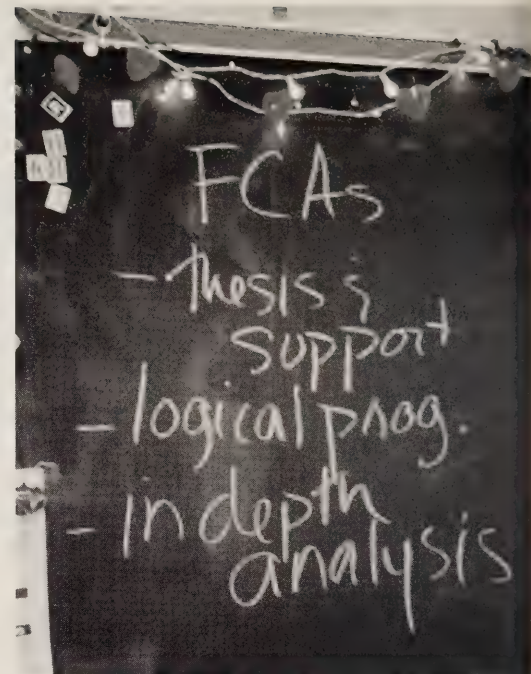 FCAs
- thesis &
support
- logical prog.
- in depth
analysis